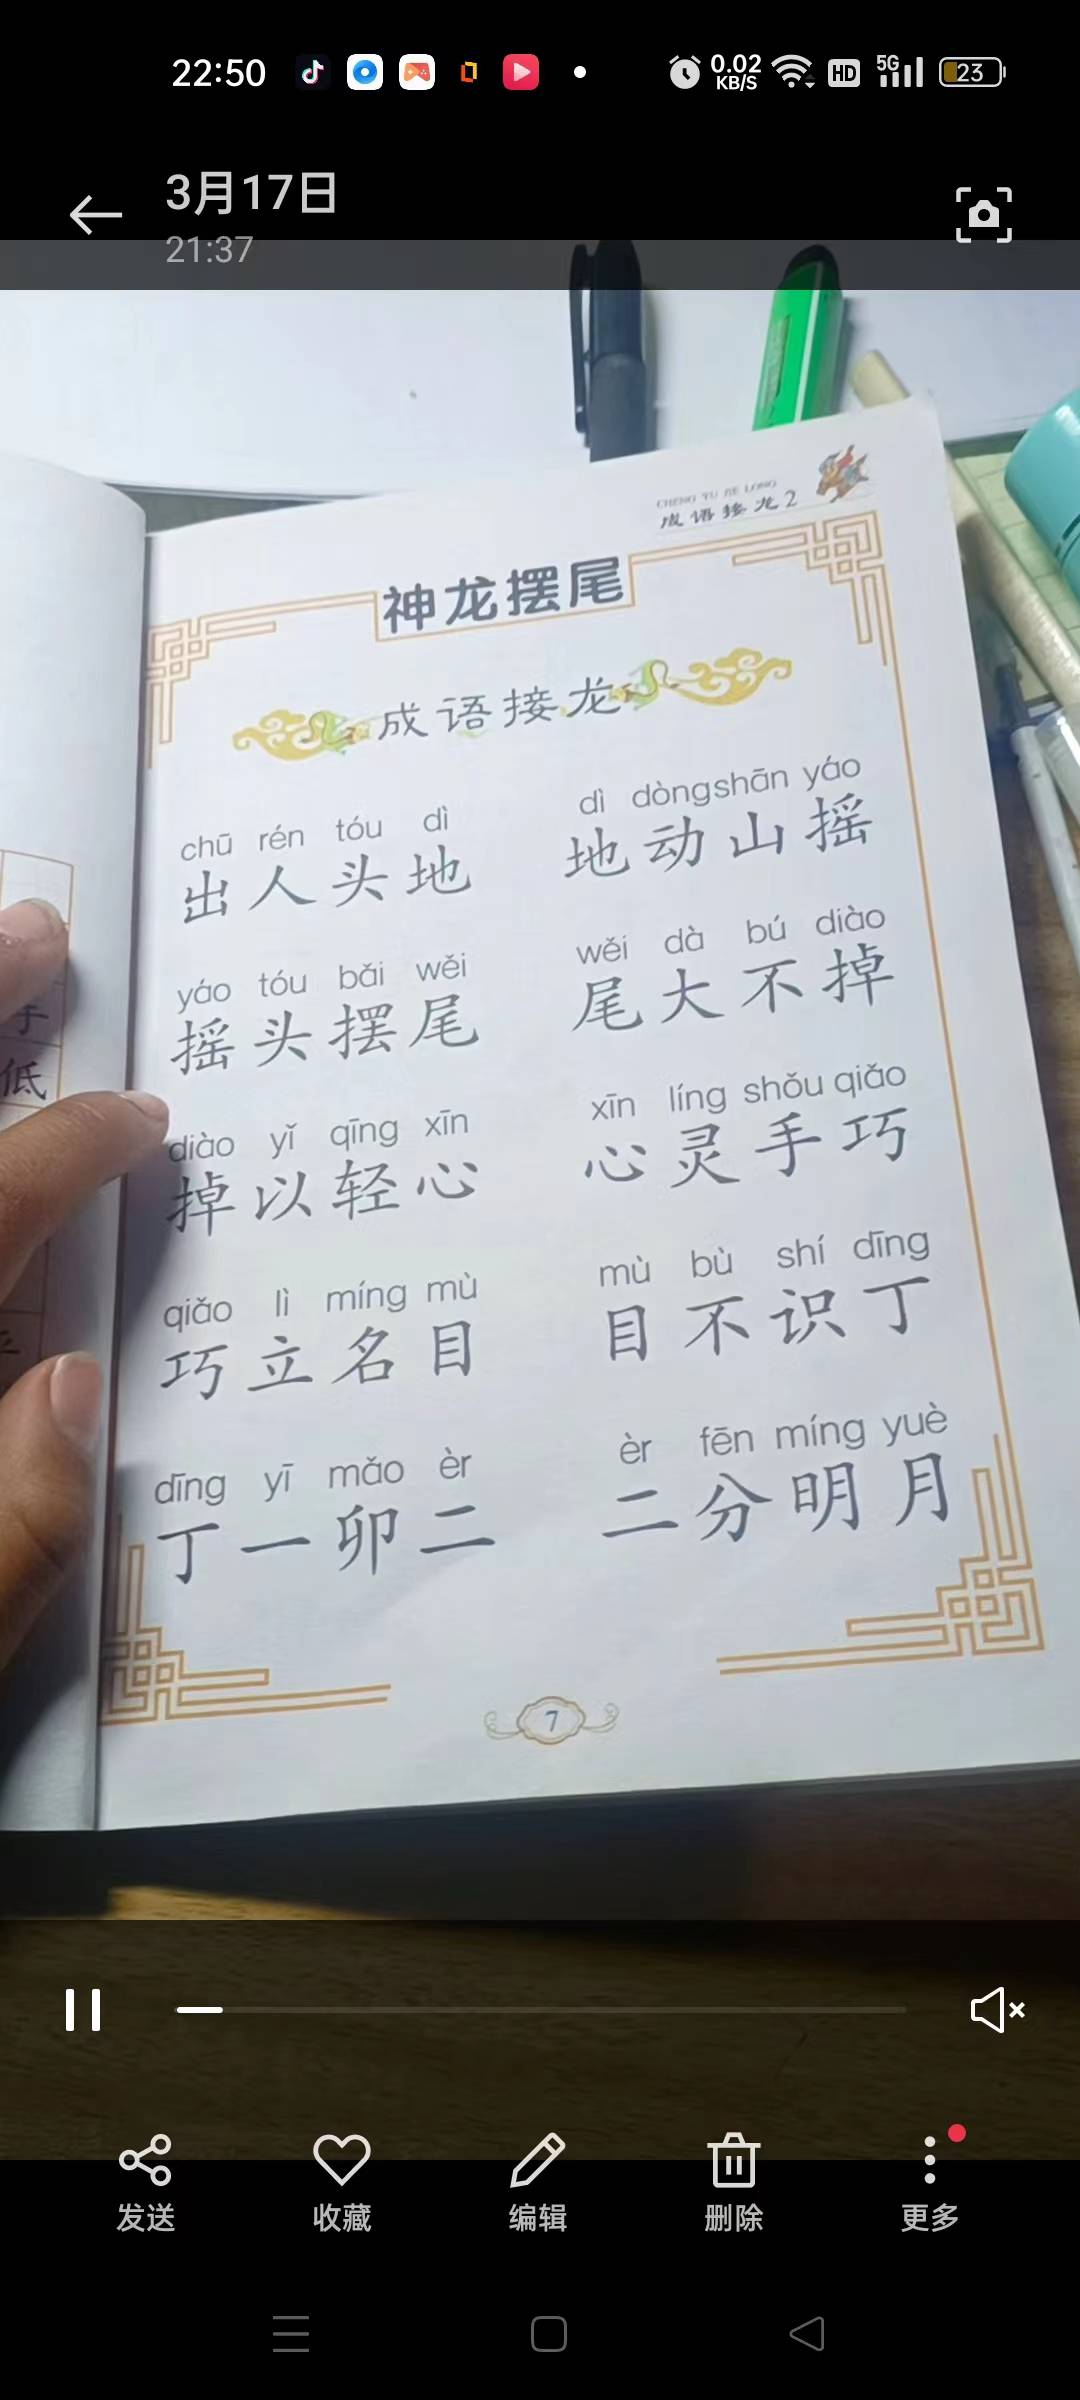 22:50
0.02 KB/S
HD
5G
23
3月17日
21:37
CHENG YU JIE LONG
成语接龙2
神龙摆尾
成语接龙
chū rén tóu dì dì dòng shān yáo
出人头地 地动山摇
yáo tóu bǎi wěi wěi dà bú diào
摇头摆尾 尾大不掉
diào yǐ qīng xīn xīn líng shǒu qiǎo
掉以轻心 心灵手巧
qiǎo lì míng mù mù bù shí dīng
巧立名目 目不识丁
dīng yī mǎo èr èr fēn míng yuè
丁一卯二 二分明月
低
7
发送 收藏 编辑 删除 更多